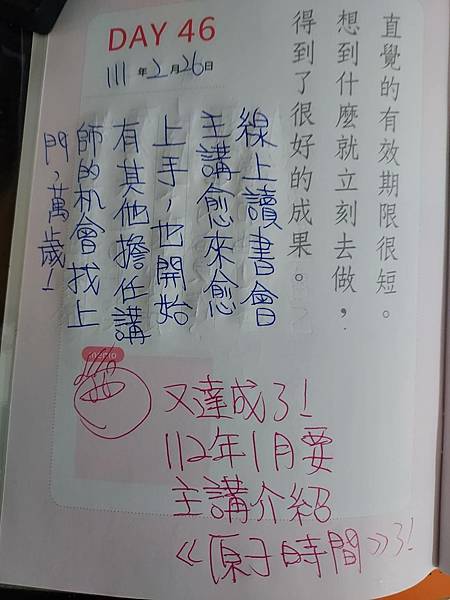 DAY 46
111年2月26日
直覺的有效期限很短。
想到什麼就立刻去做，
得到了很好的成果。
線上讀書會
主講愈來愈
上手，也開始
有其他擔任講
師的机會找上
門，萬歲！
又達成了！
112年1月要
主講介紹
《原子時間》了！